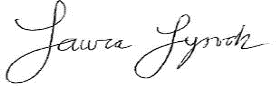 Laura Lynch